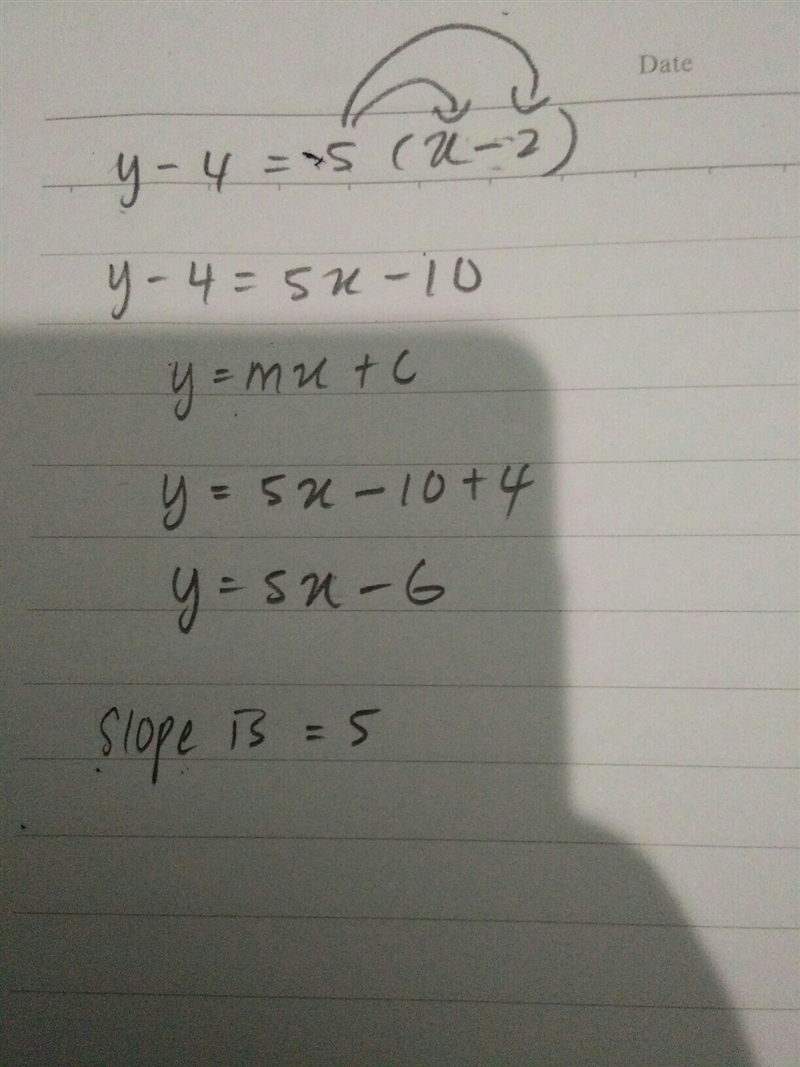 Date
y - 4 = 5 (x - 2)
y - 4 = 5x - 10
y = mx + c
y = 5x - 10 + 4
y = 5x - 6
Slope B = 5